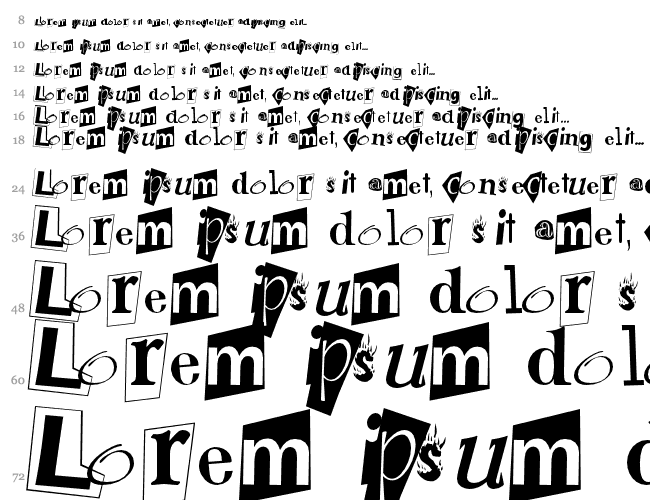 8 Lorem ipsum dolor sit amet, consectetuer adipiscing elit...
10 Lorem ipsum dolor sit amet, consectetuer adipiscing elit...
12 Lorem ipsum dolor sit amet, consectetuer adipiscing elit...
14 Lorem ipsum dolor sit amet, consectetuer adipiscing elit...
16 Lorem ipsum dolor sit amet, consectetuer adipiscing elit...
18 Lorem ipsum dolor sit amet, consectetuer adipiscing elit...
24 Lorem ipsum dolor sit amet, consectetuer a
36 Lorem ipsum dolor sit amet,
48 Lorem ipsum dolor s
60 Lorem ipsum dol
72 Lorem ipsum